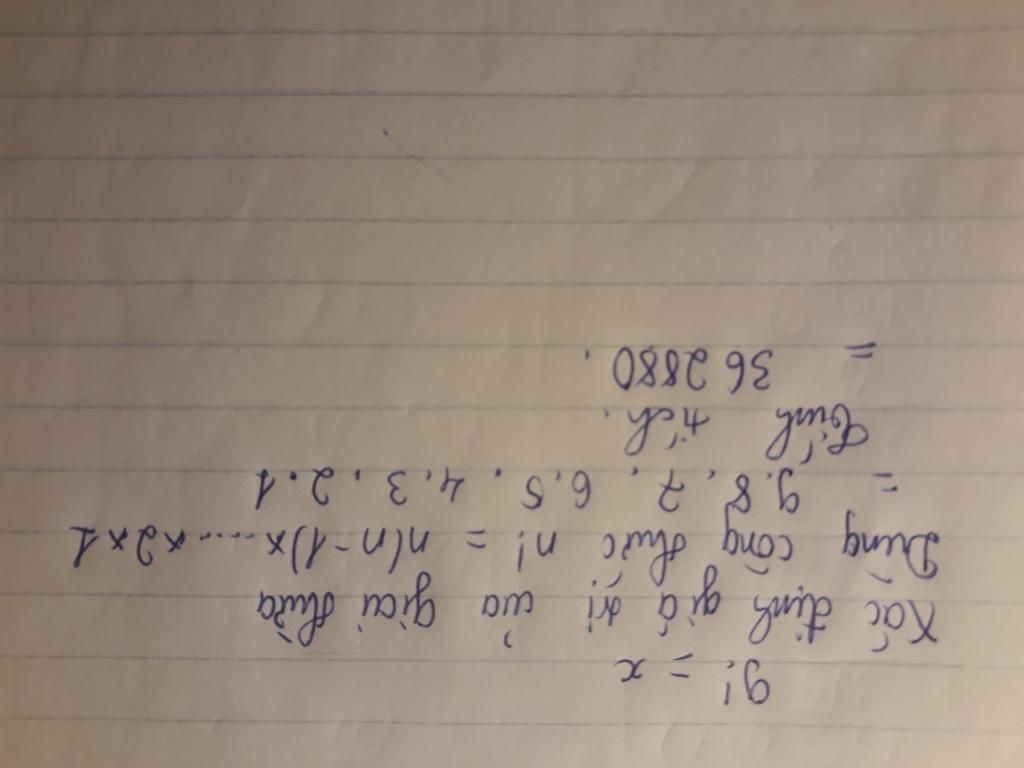 9! = x
Xác định giá trị của giai thừa
Dùng công thức n! = n(n-1)x....x2x1
= 9.8.7.6.5.4.3.2.1
Tính tích.
= 362880.